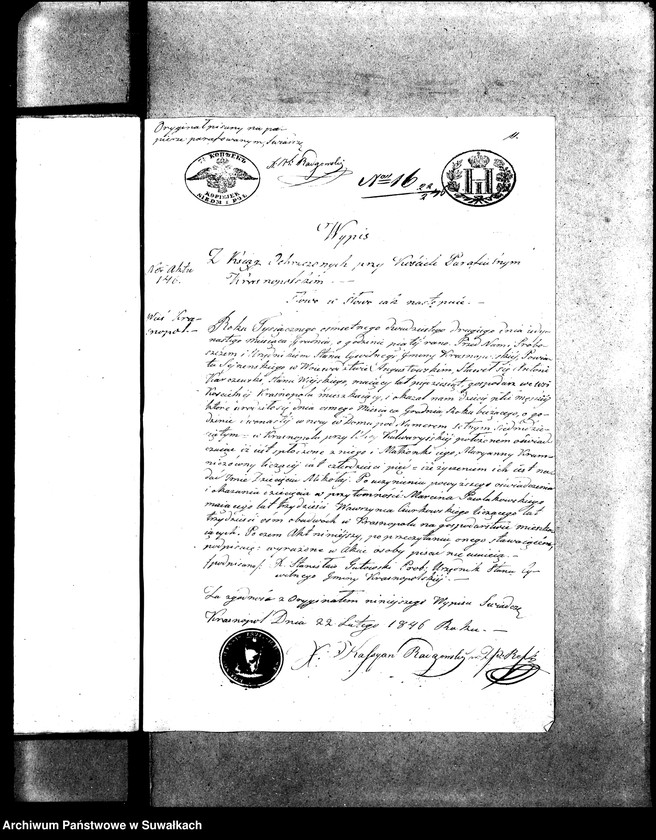 Oryginał pisany na pa-
pierze parafowanym, świadczę
X. Kas. Raczewski
7½ КОПѢЕКЪ
KOPIEJEK
SIEDM I PÓŁ
No 16 22/2 46
Wypis
Z Ksiąg Ochrzczonych przy Kościele Parafialnym
Krasnopolskim. — —
Słowo w Słowo jak następuie. —
No Aktu
146.
Wieś Kra-
snopol. —
Roku Tysiącznego ośmsetnego dwudziestego drugiego dnia iedy-
nastego miesiąca Grudnia, o godzinie piątej rano. Przed Nami Probo-
szczem i Urzędnikiem Stanu Cywilnego Gminy Krasnopolskiej, Powia-
tu Seyneńskiego w Województwie Augustowskim, Stawił się Antoni
Karczewski, Stanu Wiejskiego, maiący lat pięćdziesiąt, gospodarz we wsi
Krasnopolu mieszkający, i okazał nam dziecię płci męskiej
które urodziło się dnia osmego Miesiąca Grudnia, Roku bieżącego, o go-
dzinie w nocy w Domu pod Numerem
w Krasnopolu przy Ulicy Kalwaryjskiej położonem oświad-
czając iż iest spłodzone z niego i Małżonki iego, Maryanny
liczącej lat czterdzieści pięć — iż życzeniem ich iest na-
dać Imie Dziecięciu Mikołaj. Po uczynieniu powyższego oświadczenia
i okazania dziecięcia w przytomności: Marcina Pawlukowskiego
maiącego lat trzydzieści Wawrzyńca liczącego lat
trzydzieści osm obudwóch w Krasnopolu na gospodarstwie mieszka-
iących. Poczem Akt ninieyszy, po przeczytaniu onego stawającym,
podpisany: wyrażone w Akcie osoby pisać nie umieią. —
(podpisano) X. Stanisław Gutowski Prob. Urzędnik Stanu Cy-
wilnego Gminy Krasnopolskiej. —
Za zgodność z Oryginałem niniejszego Wypisu Świadczę
Krasnopol Dnia 22 Lutego 1846 Roku. —
X. Kasyan Raczewski
Archiwum Państwowe w Suwałkach